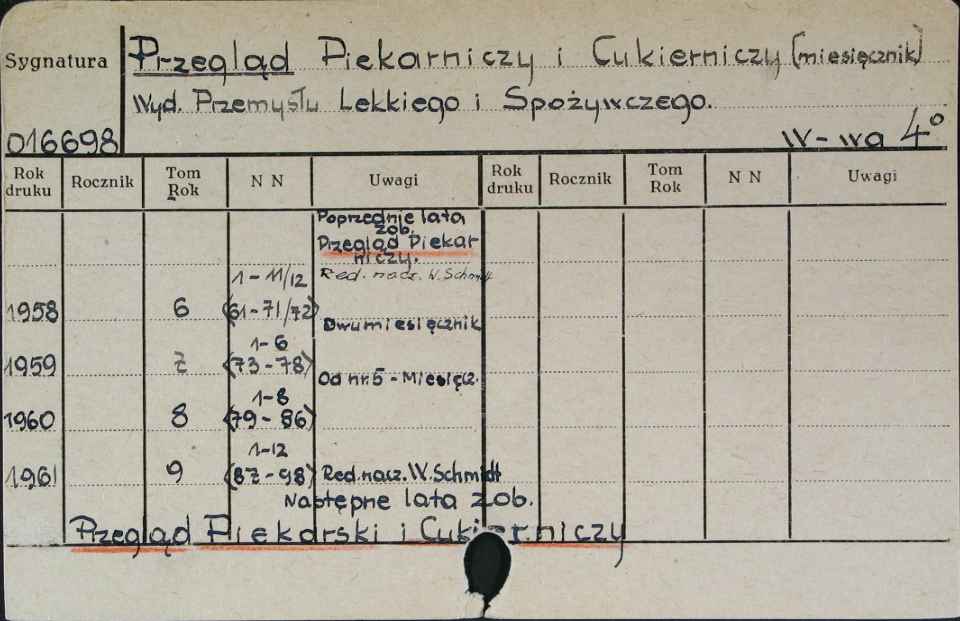 Sygnatura
Przegląd Piekarniczy i Cukierniczy (miesięcznik)
Wyd. Przemysłu Lekkiego i Spożywczego.
016698
W-wa 4°
Rok druku Rocznik Tom Rok N N Uwagi Rok druku Rocznik Tom Rok N N Uwagi
Poprzednie lata
zob.
Przegląd Piekar
niczy.
1-11/12 Red. nacz. W. Schmidt
1958 6 (61-71/72)
Dwumiesięcznik
1-6
1959 7 (73-78)
Od nr. 5 - Miesięcz.
1-8
1960 8 (79-86)
1-12
1961 9 (87-98) Red. nacz. W. Schmidt
Następne lata zob.
Przegląd Piekarski i Cukierniczy